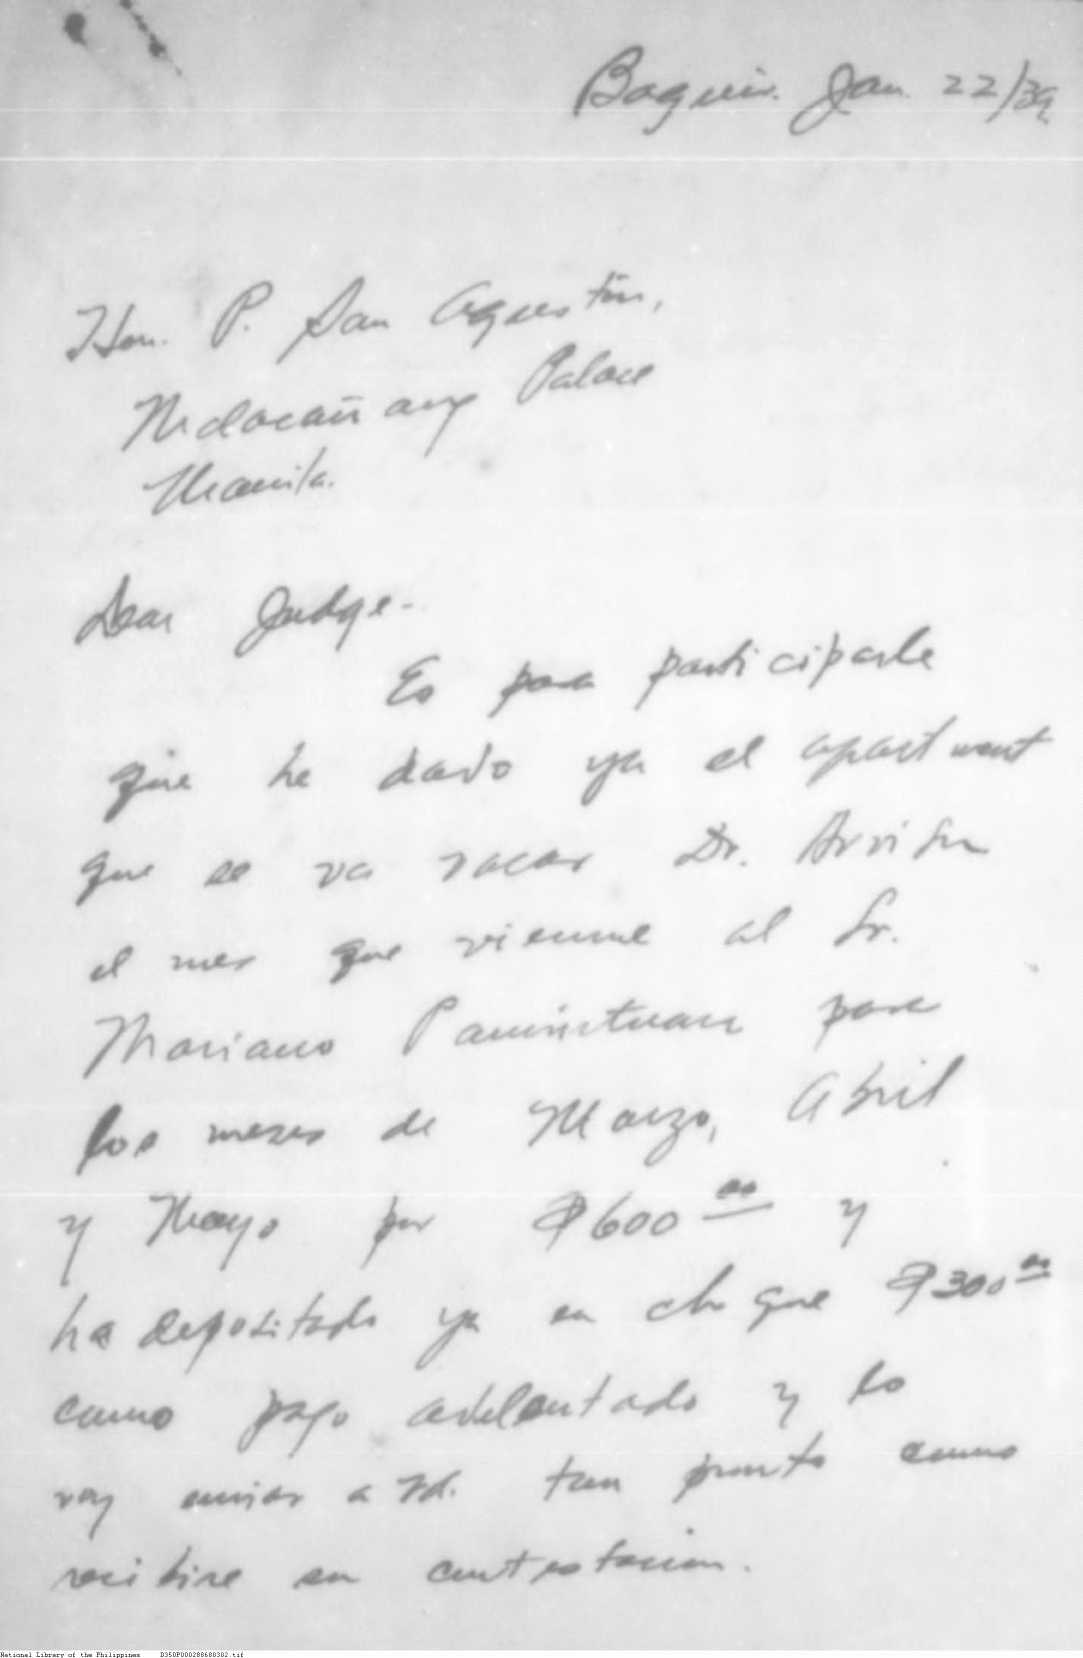 Baguio. Jan. 22/39
Hon. P. San Agustin,
Malacañang Palace
Manila.
Dear Judge-
Es para participarle
que he dado ya el apartment
que se va vacar Dr.
el mes que vienne al Sr.
Mariano Pamintuan para
los meses de Marzo, Abril
y Mayo por ₱600.00 y
ha depositado ya en cheque ₱300.00
como pago adelantado y lo
voy enviar a Vd. tan pronto como
recibire su contestacion.
National Library of the Philippines D350P000288680302.tif